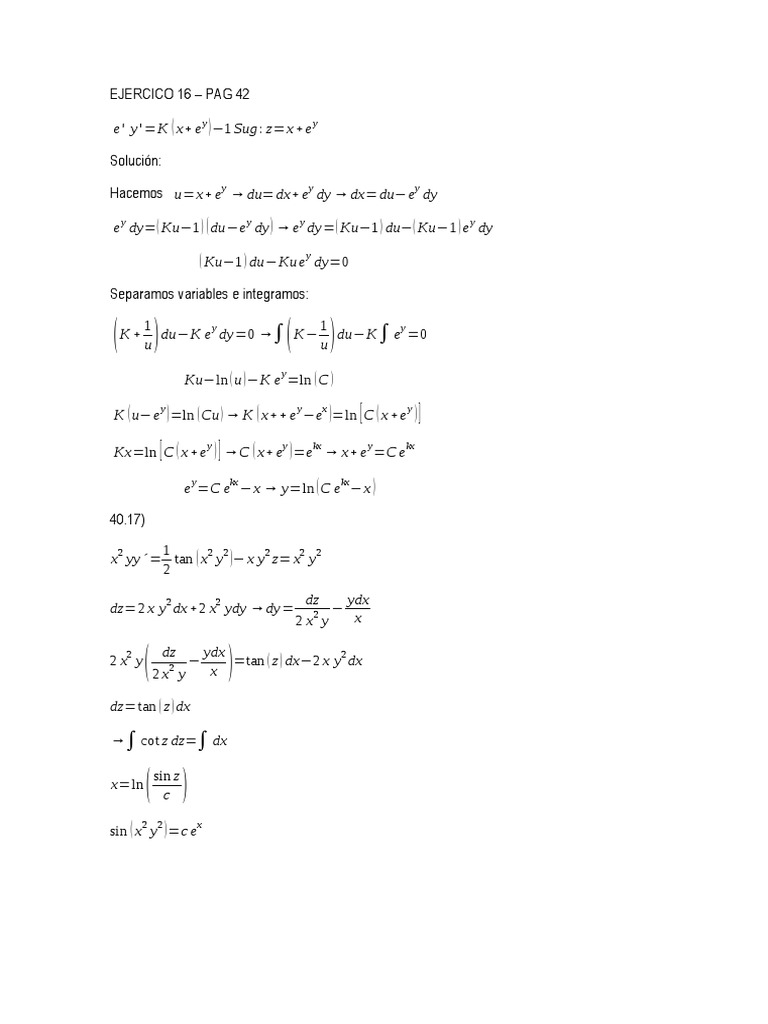 EJERCICO 16 – PAG 42
e' y'=K(x+e^y)−1 Sug: z=x+e^y
Solución:
Hacemos u=x+e^y → du=dx+e^y dy → dx=du−e^y dy
e^y dy=(Ku−1)(du−e^y dy) → e^y dy=(Ku−1)du−(Ku−1)e^y dy
(Ku−1)du−Kue^y dy=0
Separamos variables e integramos:
(K+1/u)du−K e^y dy=0 → ∫(K−1/u)du−K∫ e^y=0
Ku−ln(u)−K e^y=ln(C)
K(u−e^y)=ln(Cu) → K(x++e^y−e^x)=ln[C(x+e^y)]
Kx=ln[C(x+e^y)] → C(x+e^y)=e^kx → x+e^y=C e^kx
e^y=C e^kx−x → y=ln(C e^kx−x)
40.17)
x^2 yy´=1/2 tan(x^2 y^2)−x y^2 z=x^2 y^2
dz=2x y^2 dx+2x^2 ydy → dy=dz/(2x^2 y)−ydx/x
2x^2 y(dz/(2x^2 y)−ydx/x)=tan(z)dx−2x y^2 dx
dz=tan(z)dx
→∫ cot z dz=∫ dx
x=ln(sin z/c)
sin(x^2 y^2)=c e^x